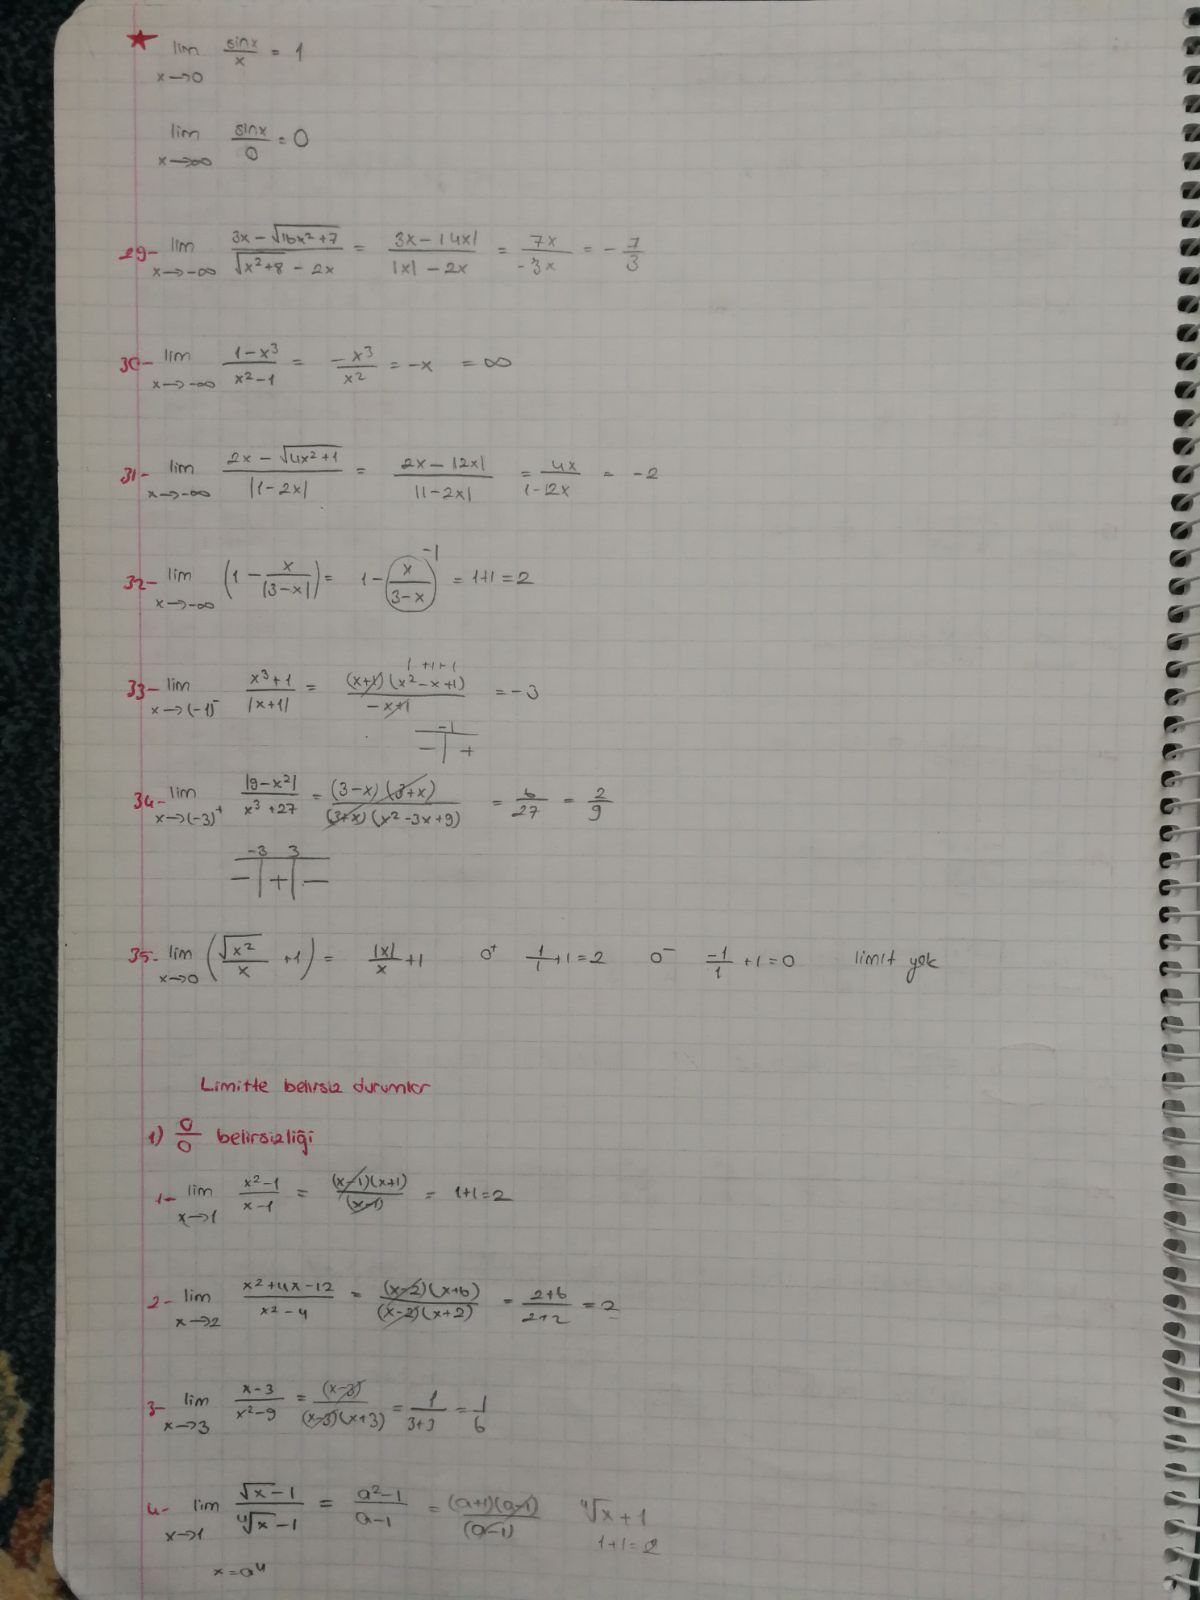 ★ lim x→0 sinx/x = 1
lim x→∞ sinx/0 = 0
29- lim x→-∞ (3x-√(16x²+7))/(√(x²+8)-2x) = (3x-|4x|)/(|x|-2x) = 7x/-3x = -7/3
30- lim x→-∞ (1-x³)/(x²-1) = -x³/x² = -x = ∞
31- lim x→-∞ (2x-√(4x²+1))/|1-2x| = (2x-|2x|)/|1-2x| = 4x/(1-2x) = -2
32- lim x→-∞ (1-x/|3-x|) = 1-(x/(3-x)) -1 = 1+1=2
33- lim x→(-1)⁻ (x³+1)/|x+1| = (x+1)(x²-x+1)/(-x+1) 1+1+1 = -3
-1
- +
34- lim x→(-3)⁺ |9-x²|/(x³+27) = (3-x)(3+x)/((3+x)(x²-3x+9)) = 6/27 = 2/9
-3 3
- + -
35- lim x→0 (√x²/x +1) = |x|/x +1 0⁺ 1/1+1=2 0⁻ -1/1+1=0 limit yok
Limitte belirsiz durumlar
1) 0/0 belirsizliği
1- lim x→1 (x²-1)/(x-1) = (x-1)(x+1)/(x-1) = 1+1=2
2- lim x→2 (x²+4x-12)/(x²-4) = (x-2)(x+6)/((x-2)(x+2)) = (2+6)/(2+2) = 2
3- lim x→3 (x-3)/(x²-9) = (x-3)/((x-3)(x+3)) = 1/(3+3) = 1/6
4- lim x→1 (√x-1)/(⁴√x-1) = (a²-1)/(a-1) = (a+1)(a-1)/(a-1) ⁴√x+1
1+1=2
x=a⁴